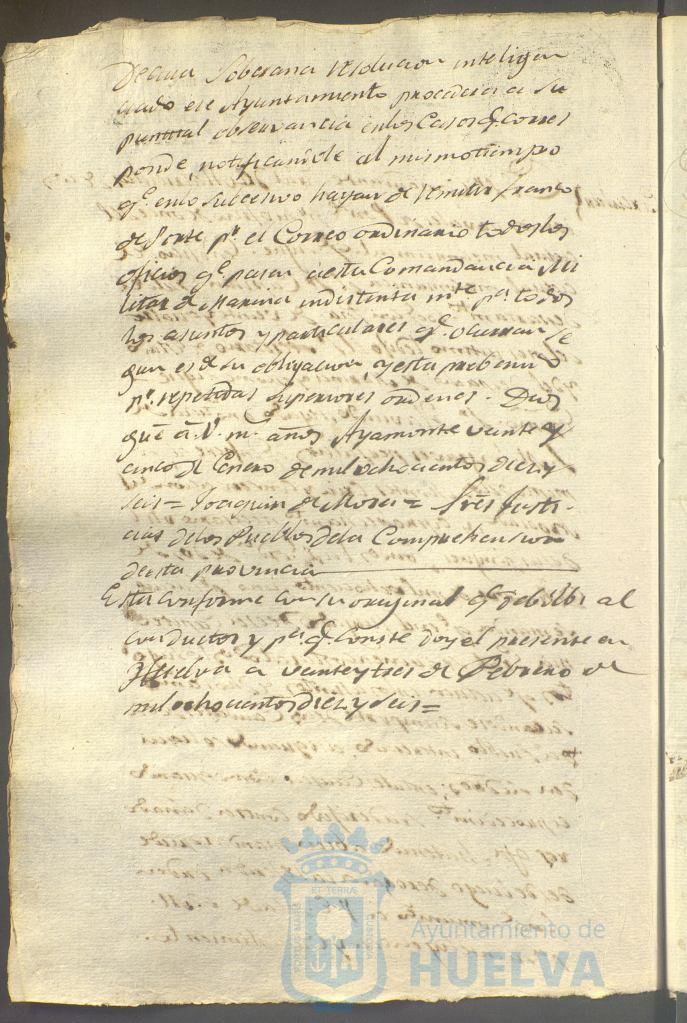 De cuia Soberana resolucion inteligen
ciado ese Ayuntamiento procedera a su
puntual observancia en los Casos q.e corres
ponde, notificandole al mismo tiempo
q.e en lo subcesivo hayan de remitir franco
de Porte p.r el Correo ordinario todos los
oficios q.e pasen a esta Comandancia Mi
litar de Marina indistinta m.te p.a todos
los asuntos y particulares q.e ocurran se
gun es de su obligacion, y esta prebenido
p.r repetidas superiores ordenes. Dios
gue a V. m.s años Ayamonte veinte y
cinco de Enero de mil ochocientos diez y
seis = Joaquin de Mora = S.res Justi-
cias de los Pueblos de la Comprehension
de esta provincia
Esta conforme con su original q.e debolbi al
conductor y p.a q.e Conste doy el presente en
Huelva a veinte y tres de Febrero de
mil ochocientos diez y seis =
Ayuntamiento de
HUELVA